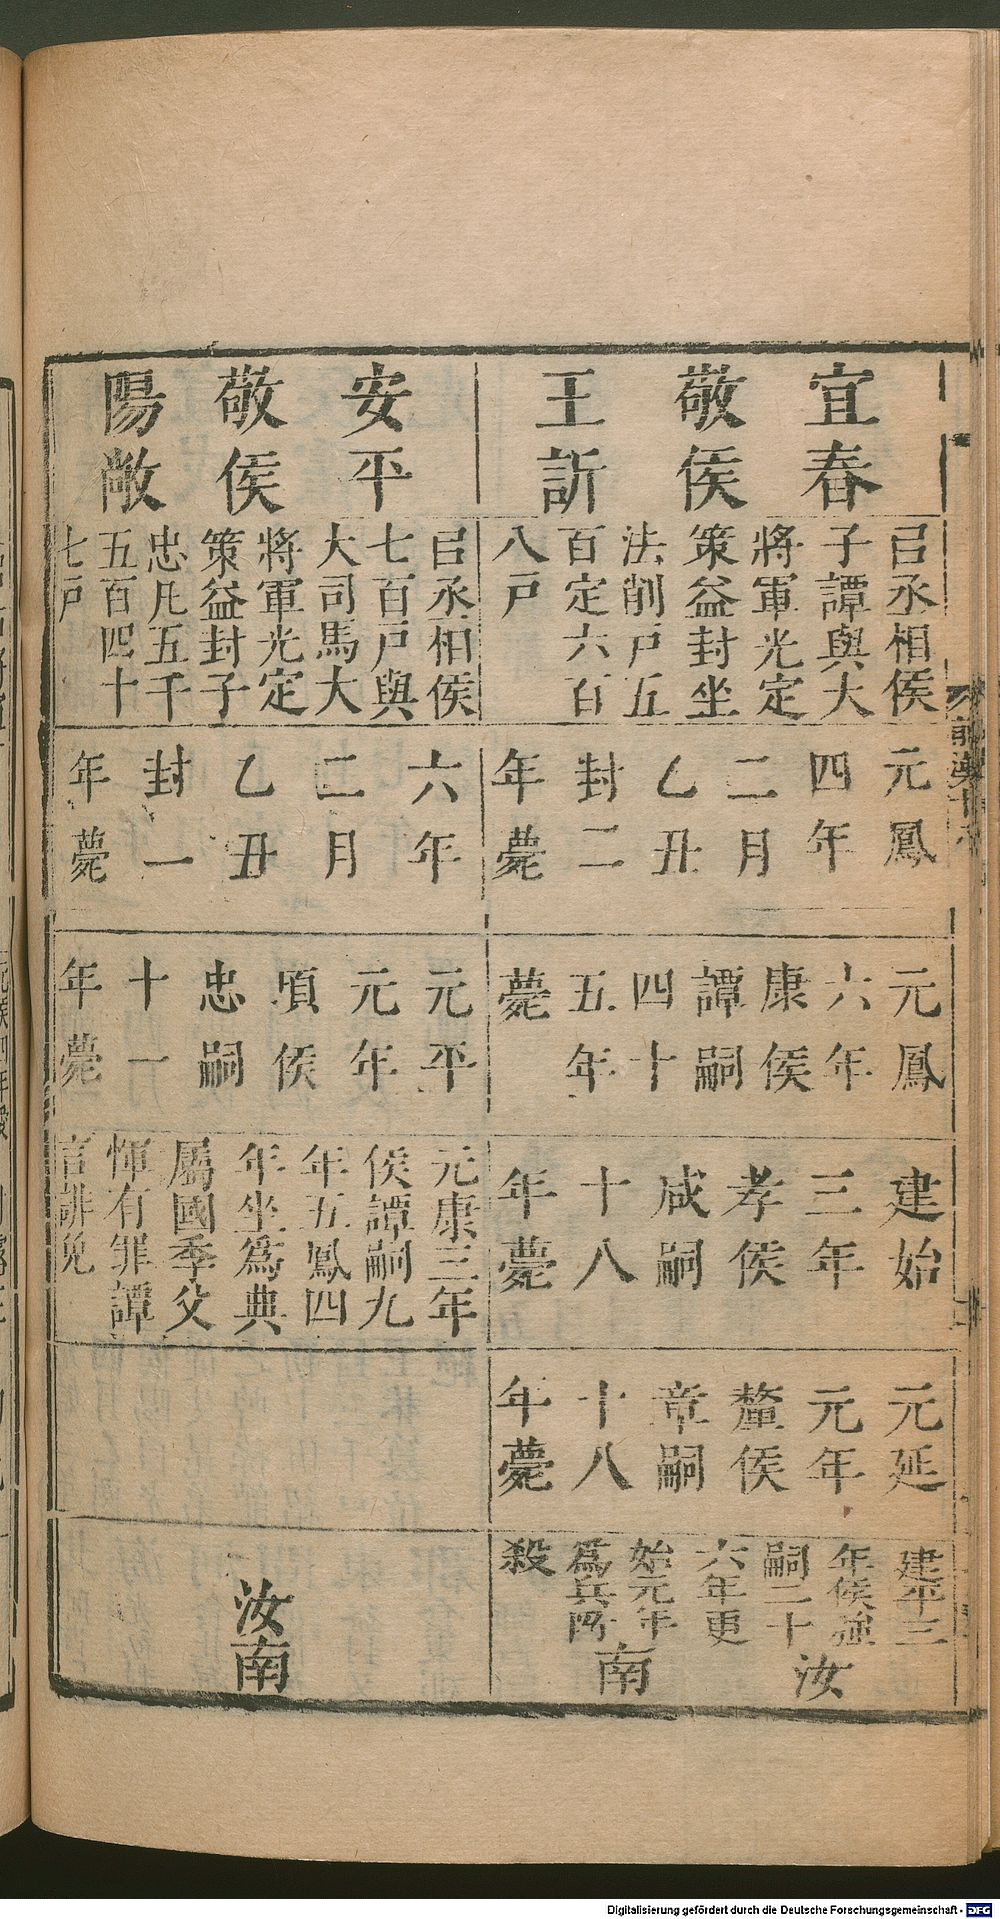 宜春
敬侯
王訢
㠯丞相侯
子譚與大
將軍光定
策益封坐
法削戸五
百定六百
八戸
元鳳
四年
二月
乙丑
封二
年薨
元鳳
六年
康侯
譚嗣
四十
五年
薨
建始
三年
孝侯
咸嗣
十八
年薨
元延
元年
釐侯
章嗣
十八
年薨
建平三
年侯強
嗣二十
六年更
始元年
爲兵所
殺
汝
南
安平
敬侯
陽敞
㠯丞相侯
七百戸與
大司馬大
將軍光定
策益封子
忠凡五千
五百四十
七戸
六年
二月
乙丑
封一
年薨
元平
元年
頃侯
忠嗣
十一
年薨
元康三年
侯譚嗣九
年五鳳四
年坐爲典
屬國季父
惲有罪譚
言誹免
汝南
前漢十八
Digitalisierung gefördert durch die Deutsche Forschungsgemeinschaft - DFG